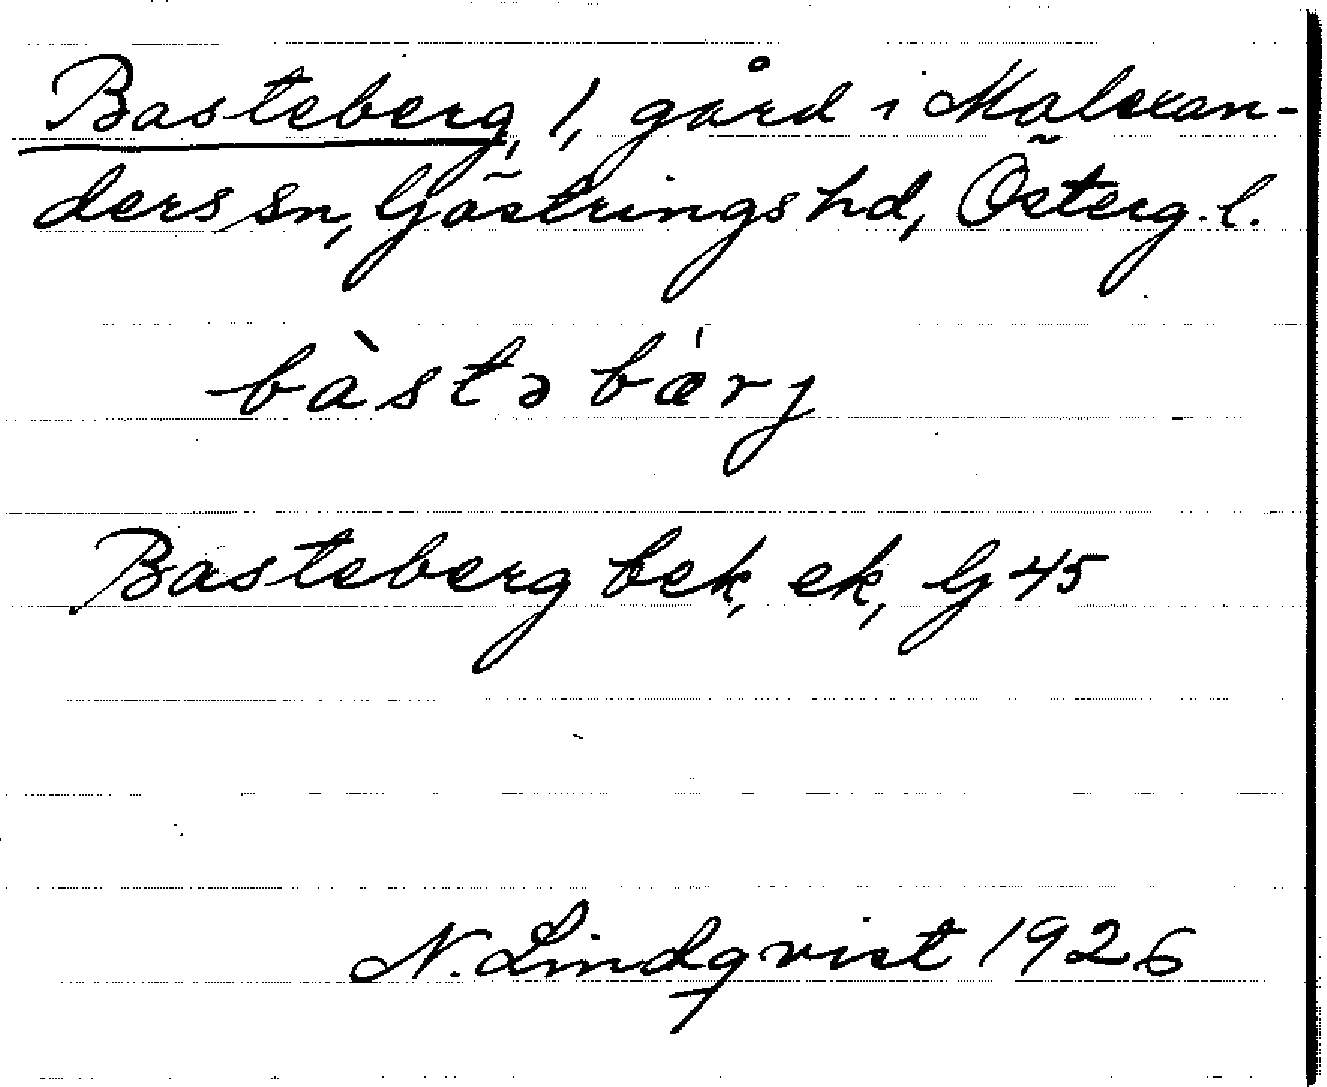 Basteberg, 1, gård i Malexan-
ders sn, Göstrings hd, Österg. l.
bàstəbæ̍rj
Basteberg bek, ek, G 45
N. Lindqvist 1926